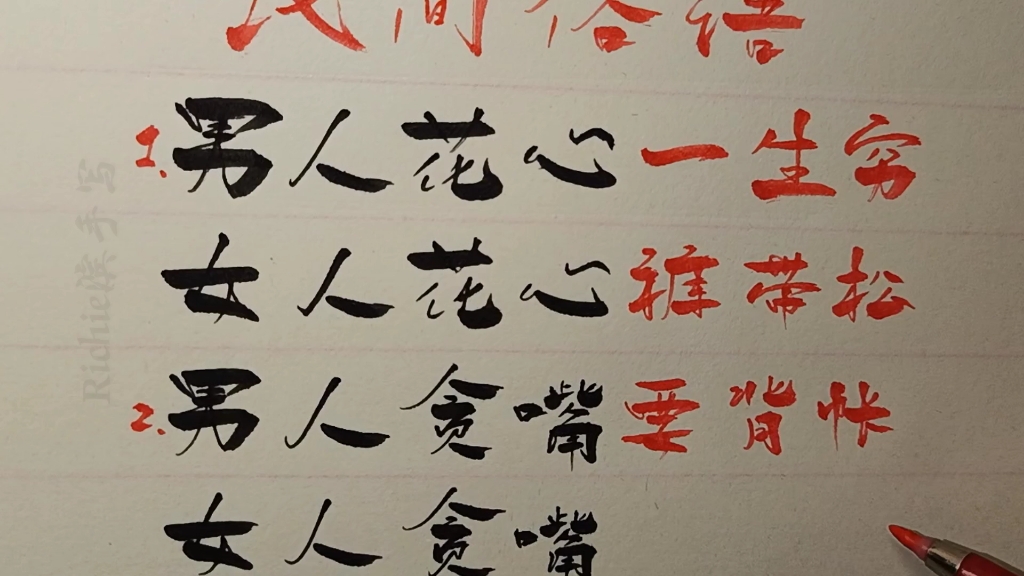 民间俗语
1.男人花心一生穷
女人花心裤带松
2.男人贪嘴要背帐
女人贪嘴
Richie滨手写